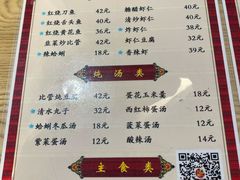 红烧刀鱼 42元 糖醋虾仁 40元
红烧舌头鱼 38元 清炒虾仁 39元
红烧黄花鱼 36元 炸虾仁 38元
韭菜炒比管 32元 虾仁豆腐 32元
辣蛤蜊 18元 香辣虾 39元
炖汤类
比管炖豆腐 42元 蛋花玉米羹 18元
清水丸子 32元 西红柿蛋汤 12元
蛤蜊冬瓜汤 18元 菠菜蛋汤 12元
紫菜蛋汤 12元 酸辣汤 14元
主食类